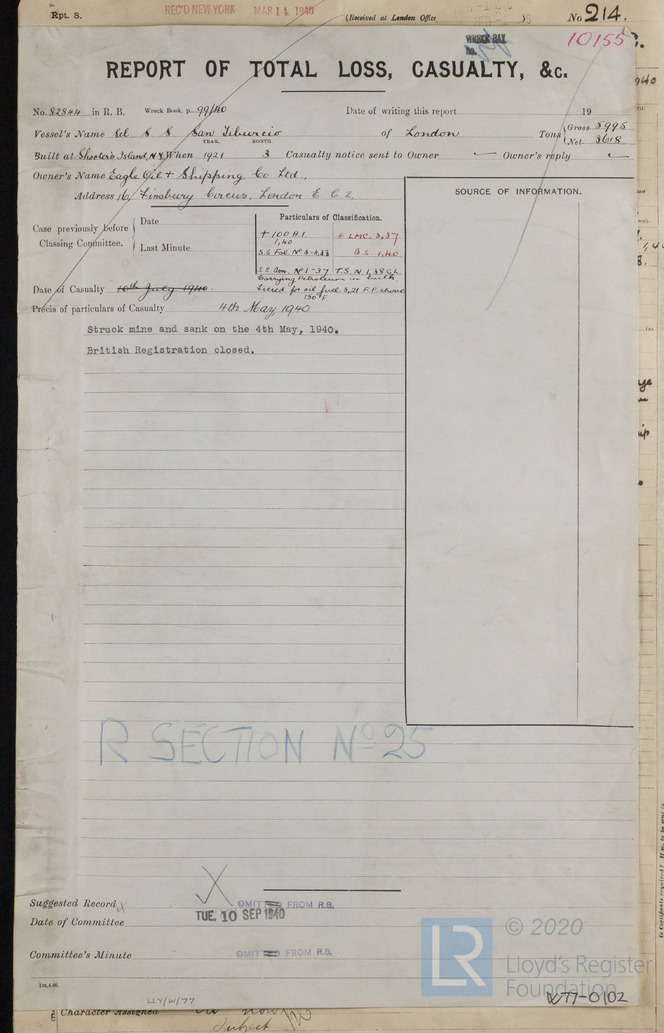 Rpt. 8.
REC'D NEW YORK MAR 14 1940
(Received at London Office
No 214.
WRECK BAY
No.
10155
REPORT OF TOTAL LOSS, CASUALTY, &c.
No. 82844 in R. B. Wreck Book, p. 99/40 Date of writing this report 19
Vessel's Name S S San Tiburcio of London Tons Gross 5995
Net 3618
YEAR. MONTH.
Built at Shooters Island, N.Y. When 1921 3 Casualty notice sent to Owner — Owner's reply —
Owner's Name Eagle Oil & Shipping Co Ltd.,
Address 16, Finsbury Circus, London E. C. 2.
SOURCE OF INFORMATION.
Case previously before Classing Committee.
Date
Last Minute
Particulars of Classification.
+ 100 A.1. + LMC 3,37
1,40
B.S. 1,40
T.S.N.
Carrying Petroleum in bulk
fitted for oil fuel 3,21 F.P. above
150°F.
Date of Casualty 10th July 1940.
Précis of particulars of Casualty 4th May, 1940
Struck mine and sank on the 4th May, 1940.
British Registration closed.
R SECTION No 25
Suggested Record
OMITTED FROM R.B.
Date of Committee TUE. 10 SEP 1940
Committee's Minute OMITTED FROM R.B.
LR
© 2020
Lloyd's Register
Foundation
1m,4,40.
LLY/W/77
W77-0102
Character Assigned